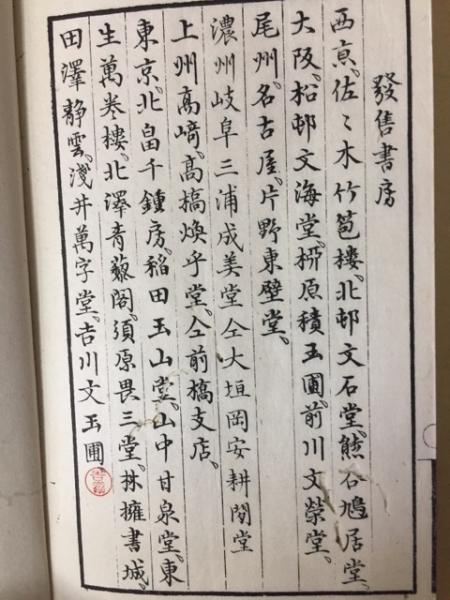 發售書房
西京。佐〻木竹苞樓。北邨文石堂。熊谷鳩居堂。
大阪。松邨文海堂。栁原積玉圃。前川文榮堂。
尾州。名古屋。片野東壁堂。
濃州岐阜三浦成美堂仝大垣岡安耕閒堂
上州髙﨑。髙橋煥乎堂。仝前橋支店。
東京。北畠千鍾房。稲田玉山堂。山中甘泉堂。東
生萬卷樓。北澤青藜閣。須原畏三堂。林擁書城。
田澤静雲。淺井萬字堂。吉川文玉圃。